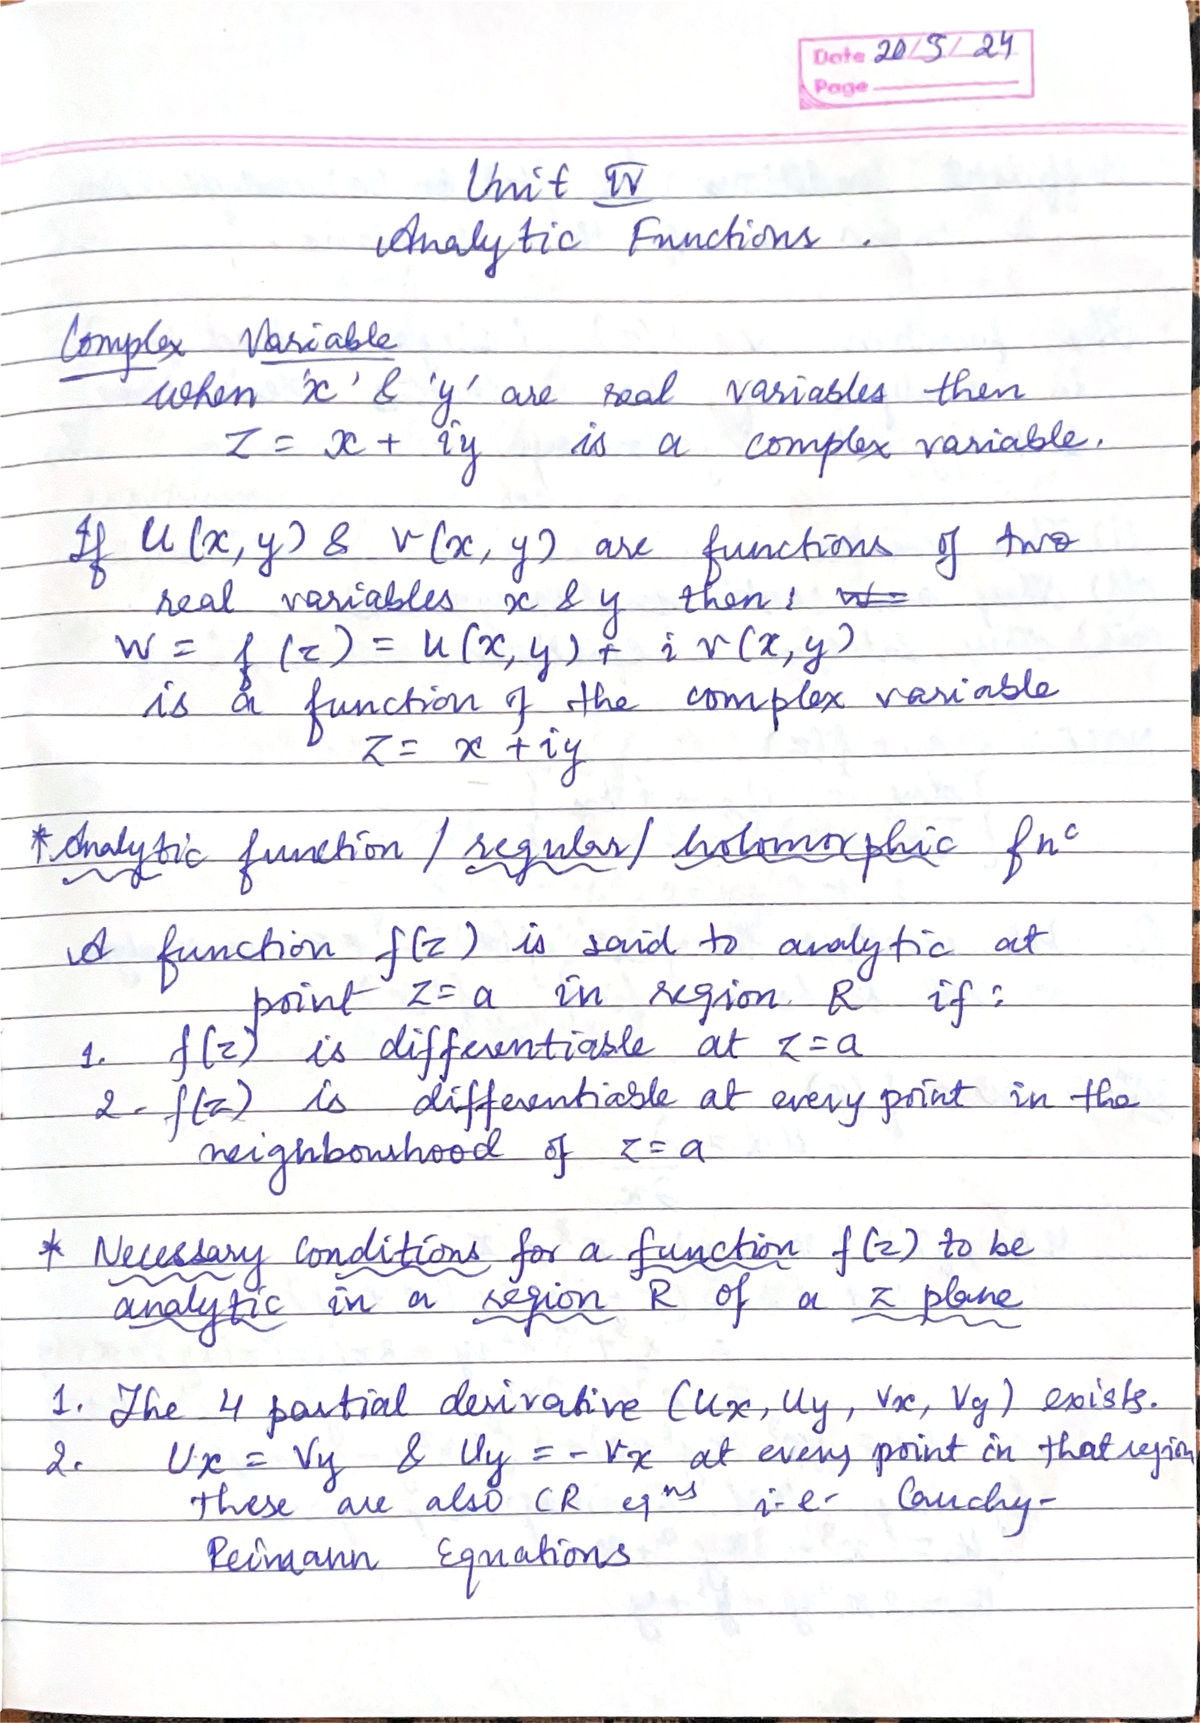 Date 20/5/24
Page
Unit IV
Analytic Functions.
Complex Variable
when 'x' & 'y' are real variables then
z = x + iy is a complex variable.
If u(x, y) & v(x, y) are functions of two
real variables x & y then: w=
w = f(z) = u(x, y) + i v(x, y)
is a function of the complex variable
z = x + iy
* Analytic function / regular / holomorphic fnc
A function f(z) is said to analytic at
point z = a in region R if:
1. f(z) is differentiable at z = a
2. f(z) is differentiable at every point in the
neighbourhood of z = a
* Necessary conditions for a function f(z) to be
analytic in a region R of a z plane
1. The 4 partial derivative (Ux, Uy, Vx, Vy) exists.
2. Ux = Vy & Uy = -Vx at every point in that region
these are also CR eqns i.e. Cauchy-
Reimann Equations